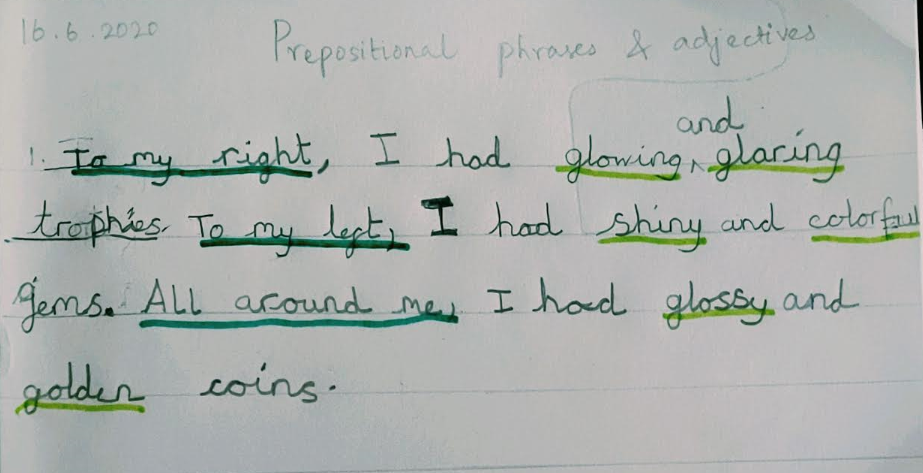 16.6.2020
Prepositional phrases & adjectives
and
1. To my right, I had glowing, glaring
trophies. To my left, I had shiny and colorful
gems. All around me, I had glossy and
golden coins.